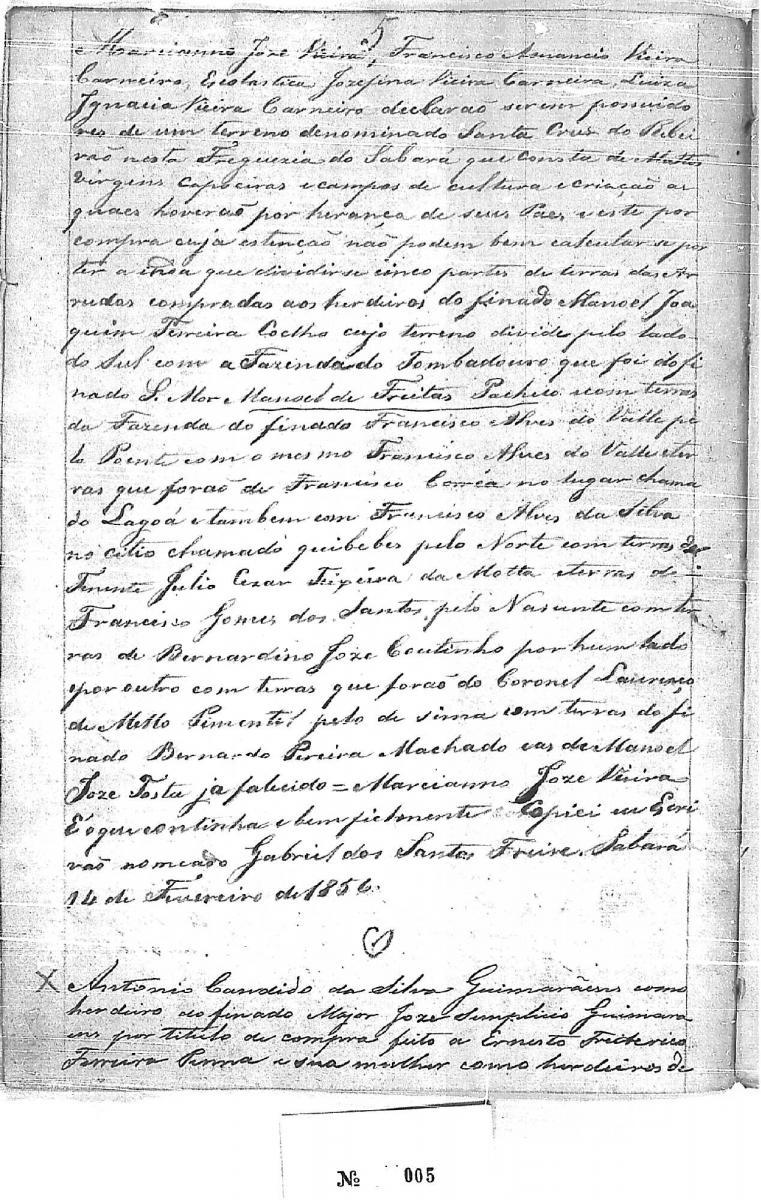 5
Marcianno Joze Vieira, Francisco Amancio Vieira
Carneiro, Escolastica Jozefina Vieira Carneira, Luiza
Ignacia Vieira Carneiro declarão serem possuido
res de um terreno denominado Santa Cruz do Ribei
rão nesta Freguezia do Sabará que consta de Mattos
virgens capoeiras e campos de cultura e criação as
quaes hoverão por herança de seus Paes e este por
compra cuja estenção não podem bem calcular se por
ter a que dividirse cinco partes de terras das Ar
rudas compradas aos herdeiros do finado Manoel Joa
quim Ferreira Coelho cujo terreno divide pelo lado
do Sul com a Fazenda do Tombadouro que foi do fi
nado S. Mor Manoel de Freitas Pacheco e com terras
da Fazenda do finado Francisco Alves do Valle pe
lo Poente com o mesmo Francisco Alves do Valle e ter
ras que forão de Francisco Corrêa no lugar chama
do Lagoá e tambem com Francisco Alves da Silva
no citio chamado quibebes pelo Norte com terras do
Tenente Julio Cezar Teixeira da Motta e terras de
Francisco Gomes dos Santos pelo Nascente com ter
ras de Bernardino Joze Coutinho por hum lado
e por outro com terras que forão do Coronel Laurenço
de Mello Pimentel pelo de sima com terras do fi
nado Bernardo Pereira Machado e as de Manoel
Joze Tosta ja falecido = Marcianno Joze Vieira
E o que continha e bem fielmente Copiei eu Escri
vão nomeado Gabriel dos Santos Freire. Sabará
14 de Fevereiro de 1856.
X Antonio Candido da Silva Guimarães como
herdeiro do finado Major Joze Simplicio Guimara
ens por titulo de compra feito a Ernesto Frederico
Ferreira Penna e sua mulher como herdeiros de
№ 005